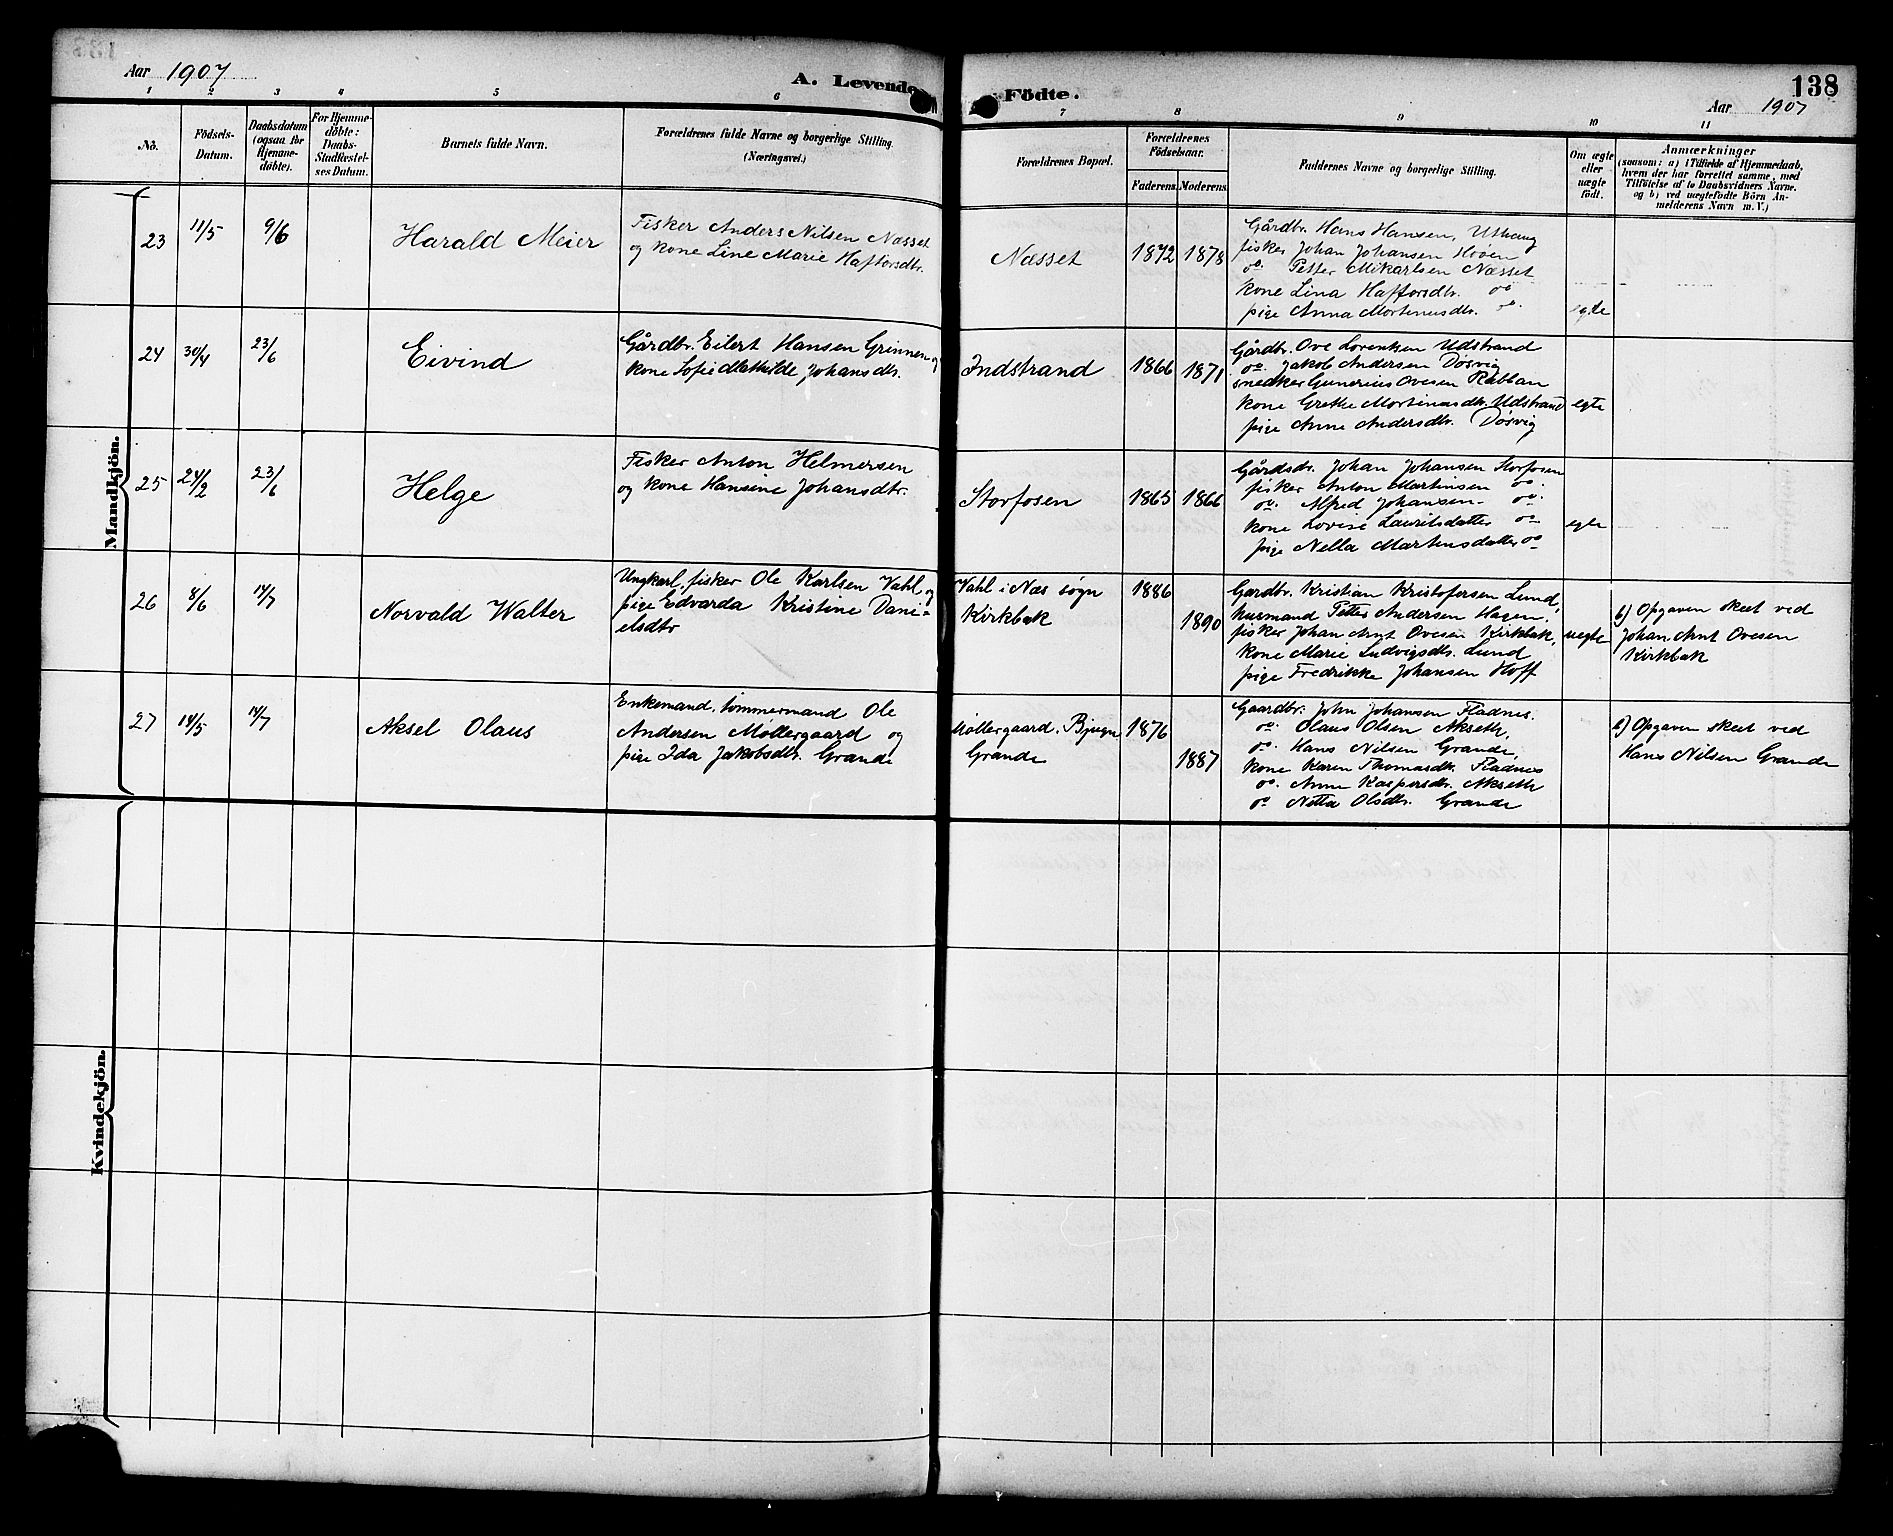 Aar 1907
A. Levende Födte.
138
Aar 1907
1 2 3 4 5 6 7 8 9 10 11
No.
Födsels-
Datum.
Daabsdatum
(ogsaa for
Hjemme-
døbte).
For Hjemme-
døbte:
Daabs-
Stadfæstel-
ses Datum.
Barnets fulde Navn.
Forældrenes fulde Navne og borgerlige Stilling.
(Næringsvei.)
Forældrenes Bopæl.
Forældrenes
Födselsaar.
Faderens.
Moderens.
Faddernes Navne og borgerlige Stilling.
Om ægte
eller
uægte
født.
Anmærkninger
(saasom: a) i Tilfælde af Hjemmedaab,
hvem der har forrettet samme, med
Tilføielse af to Daabsvidners Navne.
og b) ved uægtefødte Börn An-
melderens Navn m. V.)
Mandkjön.
23
11/5
9/6
Harald Meier
Fisker Anders Nilsen Næsset
og kone Line Marie Haftorsdtr.
Næsset
1872
1878
Gårdbr. Hans Hansen, Uthaug
fisker Johan Johansen Hoøen
do. Petter Mikarlsen Næsset
kone Lina Haftorsdtr. do
pige Anna Mortinusdtr. do.
egte
24
30/4
23/6
Eivind
Gårdbr. Eilert Hansen Grinnen og
kone Sofie Mathilde Johansdtr.
Indstrand
1866
1871
Gårdbr. Ove Lorentsen Udstrand
do. Jakob Andersen Døsvig
snedker Gunerius Ovesen Rabban
kone Grethe Mortinusdtr. Udstrand
pige Anne Andersdtr. Døsvig
egte
25
24/2
23/6
Helge
Fisker Anton Helmersen
og kone Hansine Johansdtr.
Storfosen
1865
1866
Gårdsdr. Johan Johansen Storfosen
fisker Anton Martinsen do.
do. Alfred Johansen do.
kone Lovise Lauritsdatter do
pige Nella Martinusdatter do
egte
26
8/6
14/7
Norvald Walter
Ungkarl, fisker Ole Karlsen Vahl og
pige Edvarda Kristine Dani-
elsdtr
Vahl i Næs sogn
Kirkbak
1886
1890
Gardbr. Kristian Kristofersen Lund,
husmand Petter Andersen Hagen,
fisker Johan Arnt Ovesen Kirkbak,
kone Marie Ludvigsdtr. Lund
pige Fredrikke Johansen Hoff
uegte
b) Opgaven skeet ved
Johan Arnt Ovesen
Kirkbak
27
14/5
14/7
Aksel Olaus
Enkemand, tømmermand Ole
Andersen Møllergaard og
pige Ida Jakobsdtr. Grande
Møllergaard, Bjugn
Grande
1876
1887
Gaardbr. John Johansen Fladnes.
do. Olaus Olsen Akseth,
do. Hans Nilsen Grande,
kone Karen Thomasdtr. Fladnes
do. Anne Kaspersdtr. Akseth
do Netta Olsdtr. Grande
b) Opgaven skeet ved
Hans Nilsen Grande
Kvindekjön.